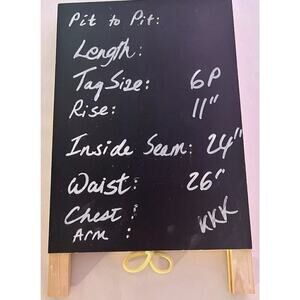 Pit to Pit:
Length:
Tag Size: 6P
Rise: 11"
Inside Seam: 24"
Waist: 26"
Chest:
Arm: KKK